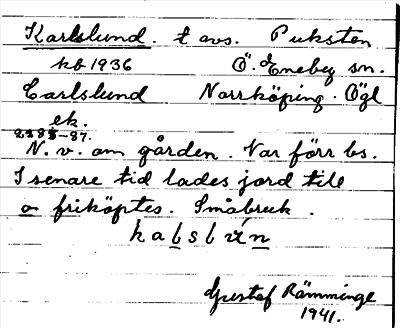 Karlslund. t avs. Puksten
kb 1936 Ö. Eneby sn.
Carlslund Norrköping. Ögl
ek.
2385-87.
N. v. om gården. Var förr bs.
I senare tid lades jord till
o friköptes. Småbruk.
Gustaf Rämminge
1941.